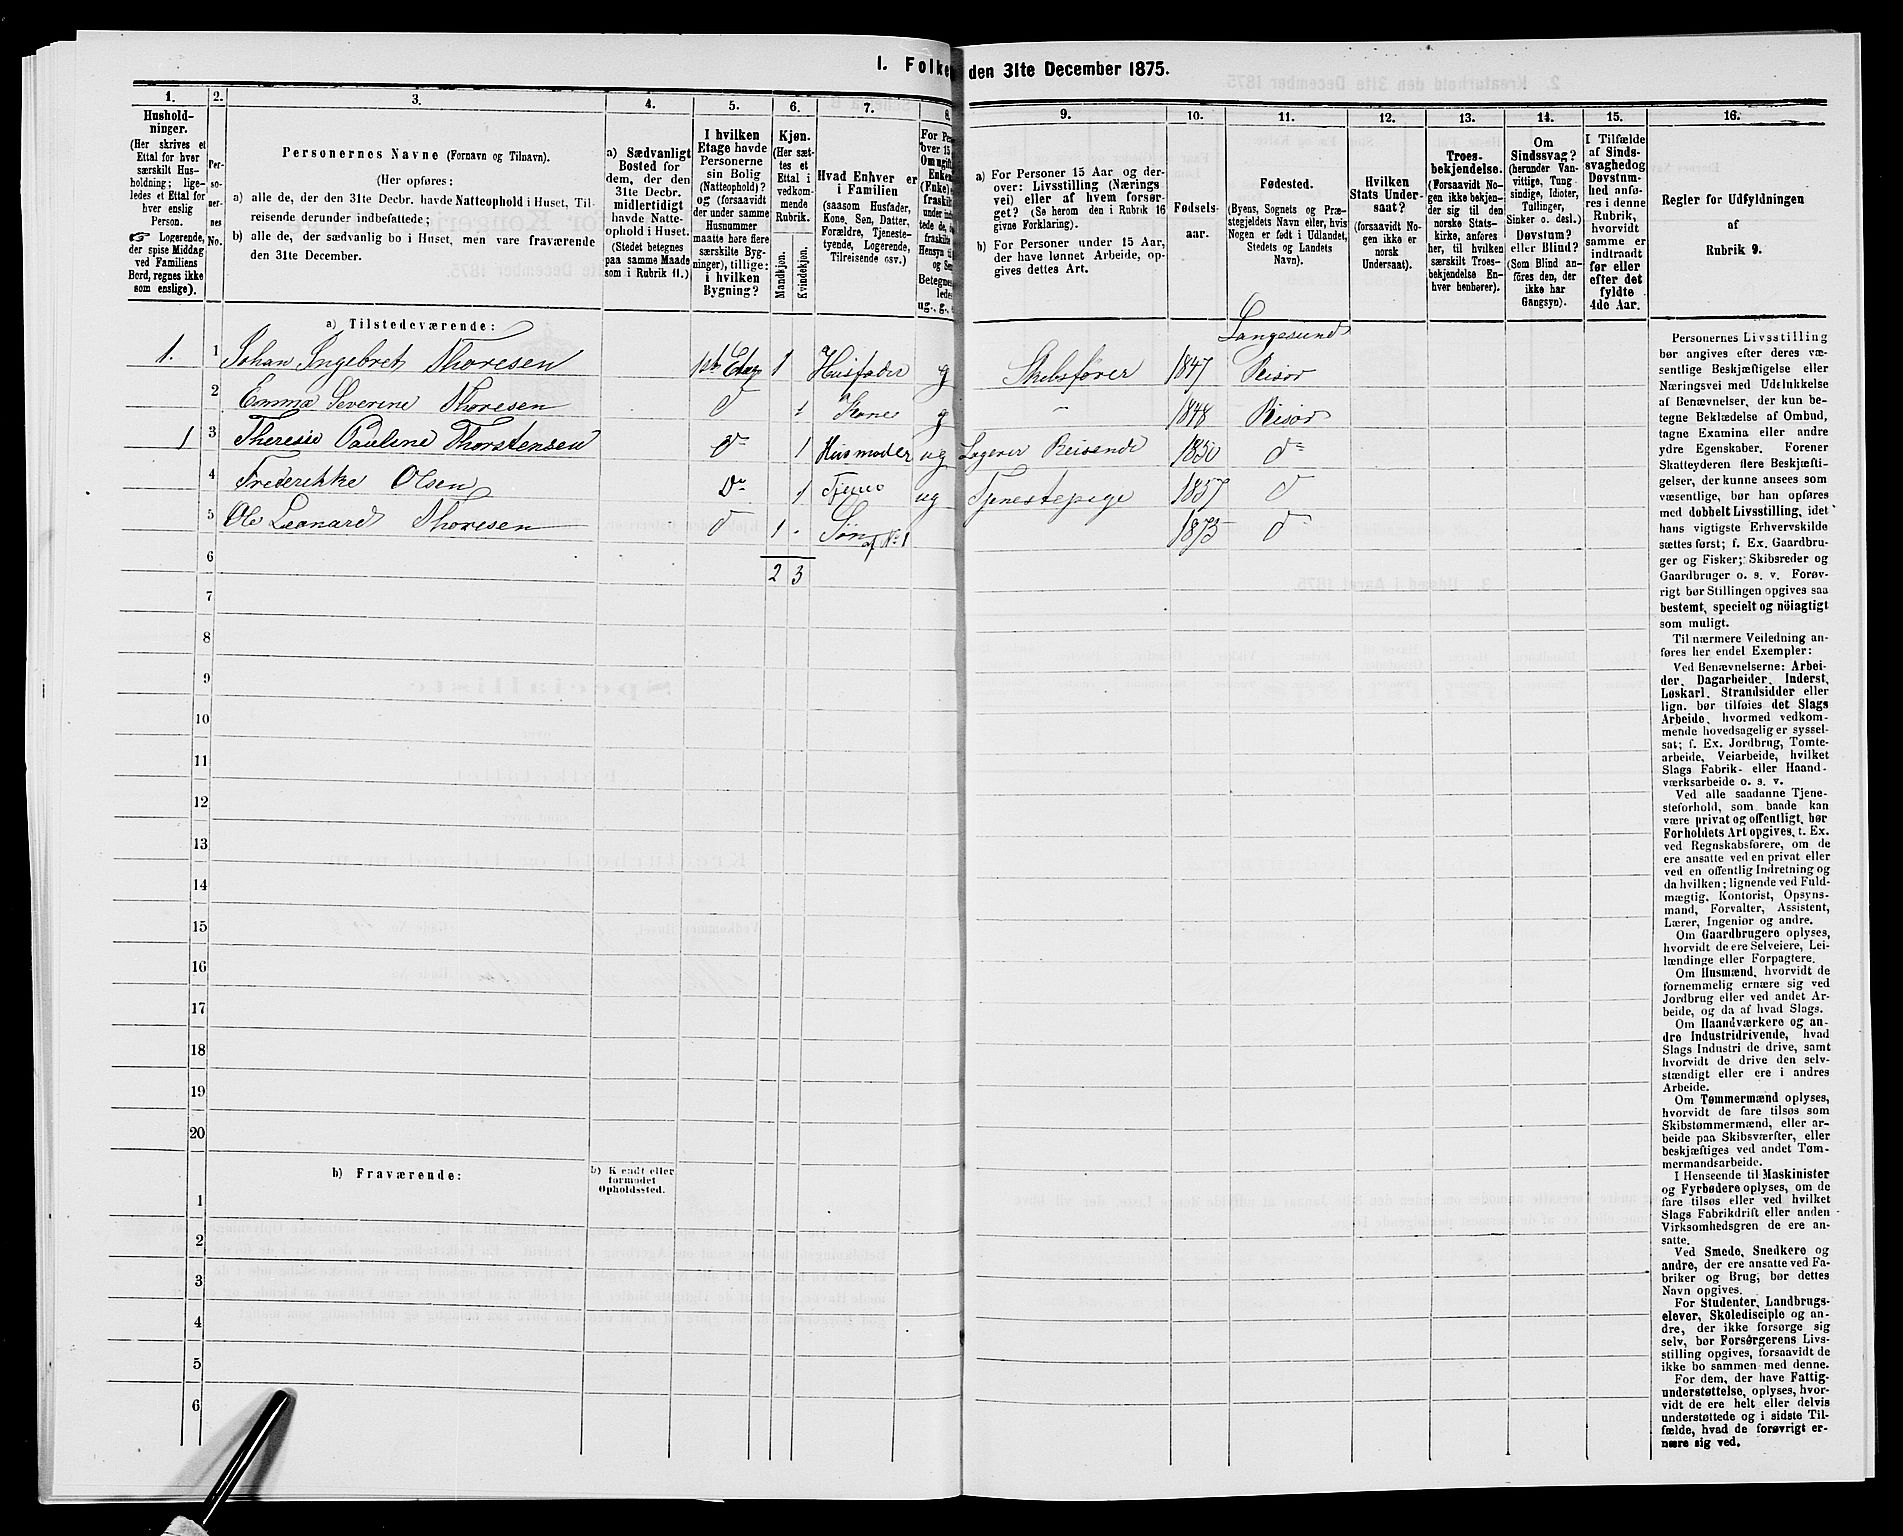 I. Folke den 31te December 1875.
1. 2. 3. 4. 5. 6. 7. 8. 9. 10. 11. 12. 13. 14. 15. 16.
Hushold-
ninger.
(Her skrives et
Ettal for hver
særskilt Hus-
holdning; lige-
ledes et Ettal for
hver enslig
Person.
☞ Logerende,
der spise Middag
ved Familiens
Bord, regnes ikke
som enslige).
Per-
so-
ner-
nes
No.
Personernes Navne (Fornavn og Tilnavn).
(Her opføres:
a) alle de, der den 31te Decbr. havde Natteophold i Huset, Til-
reisende derunder indbefattede;
b) alle de, der sædvanlig bo i Huset, men vare fraværende
den 31te December.
a) Sædvanligt
Bosted for
dem, der den
31te Decbr.
midlertidigt
havde Natte-
ophold i Huset.
(Stedet betegnes
paa samme Maade
som i Rubrik 11.)
I hvilken
Etage havde
Personerne
sin Bolig
(Natteophold)?
og (forsaavidt
der under samme
Husnummer
maatte høre flere
særskilte Byg-
ninger), tillige:
i hvilken
Bygning?
Kjøn.
(Her sæt-
tes et
Ettal i
vedkom-
mende
Rubrik.
Mandkjøn.
Kvindekjøn.
Hvad Enhver er
i Familien
(saasom Husfader,
Kone, Søn, Datter,
Forældre, Tjeneste-
tyende, Logerende,
Tilreisende osv.)
For Pers
over 15
Om ugift
Enken
(Fnke)
fraskilt
under ind
tede de,
fraskilt
Hensyn til
og Sen
Betegnes
ledes
ug., g.,
a) For Personer 15 Aar og der-
over: Livsstilling (Nærings
vei) eller af hvem forsør-
get? (Se herom den i Rubrik 16
givne Forklaring).
b) For Personer under 15 Aar,
der have lønnet Arbeide, op-
gives dettes Art.
Fødsels-
aar.
Fødested.
(Byens, Sognets og Præ-
stegjeldets Navn eller, hvis
Nogen er født i Udlandet,
Stedets og Landets
Navn).
Hvilken
Stats Under-
saat?
(forsaavidt No-
gen ikke er
norsk
Undersaat).
Troes-
bekjendelse.
(Forsaavidt No-
gen ikke bekjen-
der sig til den
norske Stats-
kirke, anføres
her, til hvilken
særskilt Troes-
bekjendelse En-
hver henhører).
Om
Sindssvag?
(herunder Van-
vittige, Tung
sindige, Idioter,
Tullinger,
Sinker o. desl.)
Døvstum?
eller Blind?
(Som Blind an-
føres den, der
ikke har
Gangsyn).
I Tilfælde
af Sinds-
svaghed og
Døvstum-
hed anfø-
res i denne
Rubrik,
hvorvidt
samme er
indtraadt
før eller
efter det
fyldte
4de Aar.
Regler for Udfyldningen
af
Rubrik 9.
a) Tilstedeværende:
Langesund
1. 1 Johan Ingebret Thoresen 1ste Etage 1 Husfader g Skibsfører 1847 Risør
2 Emma Severine Thoresen d 1 Kone g " 1848 Risør
1 3 Theresie Pauline Thorstensen do 1 Husmoder ug Logerer Reisende 1850 do
4 Frederikke Olsen do 1 Tjener ug Tjenestepige 1857 d
5 Ole Leonard Thoresen d 1 - Søn af No 1 1873 d
6
2 3
7
8
9
10
11
12
13
14
15
16
17
18
19
20
b) Fraværende:
b) Kjendt eller
formodet
Opholdssted.
1
2
3
4
5
6
Personernes Livsstilling
bør angives efter deres væ-
sentlige Beskjæftigelse eller
Næringsvei med Udelukkelse
af Benævnelser, der kun be-
tegne Beklædelse af Ombud,
tagne Examina eller andre
ydre Egenskaber. Forener
Skatteyderen flere Beskjæfti-
gelser, der kunne ansees som
væsentlige, bør han opføres
med dobbelt Livsstilling, idet
hans vigtigste Erhvervskilde
sættes først; f. Ex. Gaardbru-
ger og Fisker; Skibsreder og
Gaardbruger o. s. v. Forøv-
rigt bør Stillingen opgives saa
bestemt, specielt og nøiagtigt
som muligt.
Til nærmere Veiledning an-
føres her endel Exempler:
Ved Benævnelserne: Arbei-
der, Dagarbeider, Inderst,
Løskarl, Strandsidder eller
lign. bør tilføies det Slags
Arbeide, hvormed vedkom-
mende hovedsagelig er syssel-
sat; f. Ex. Jordbrug, Tomte-
arbeide, Veiarbeide, hvilket
Slags Fabrik- eller Haand-
værksarbeide o. s. v.
Ved alle saadanne Tjene-
steforhold, som baade kan
være privat og offentligt, bør
Forholdets Art opgives, t. Ex.
ved Regnskabsførere, om de
ere ansatte ved en privat eller
ved en offentlig Indretning og
da hvilken; lignende ved Fuld-
mægtig, Kontorist, Opsyns-
mand, Forvalter, Assistent,
Lærer, Ingeniør og andre.
Om Gaardbrugere oplyses,
hvorvidt de ere Selveiere, Lei-
lændinge eller Forpagtere.
Om Husmænd, hvorvidt de
fornemmelig ernære sig ved
Jordbrug eller ved andet Ar-
beide, og da af hvad Slags.
Om Haandværkere og an-
dre Industridrivende, hvad
Slags Industri de drive, samt
hvorvidt de drive den selv-
stændigt eller ere i andres
Arbeide.
Om Tømmermænd oplyses,
hvorvidt de fare tilsøs som
Skibstømmermænd, eller ar-
beide paa Skibsværfter, eller
beskjæftiges ved andet Tøm-
mermandsarbeide.
I Henseende til Maskinister
og Fyrbødere oplyses, om de
fare tilsøs eller ved hvilket
Slags Fabrikdrift eller anden
Virksomhedsgren de ere an-
satte.
Ved Smede, Snedkere og
andre, der ere ansatte ved Fa-
briker og Brug, bør dettes
Navn opgives.
For Studenter, Landbrugs-
elever, Skoledisciple og an-
dre, der ikke forsørge sig
selv, bør Forsørgerens Livs-
stilling opgives, forsaavidt de
ikke bo sammen med denne.
For dem, der have Fattig-
understøttelse, oplyses, hvor-
vidt de ere helt eller delvis
understøttede og i sidste Til-
fælde, hvad de forøvrigt er-
nære sig ved.